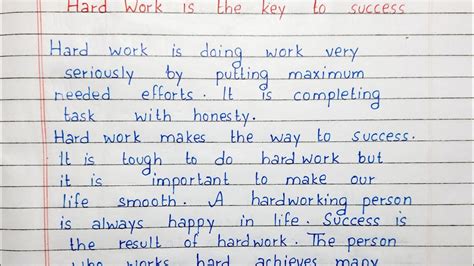 Hard Work is the key to success
Hard work is doing work very
seriously by putting maximum
needed efforts. It is completing
task with honesty.
Hard work makes the way to success.
It is tough to do hardwork but
it is important to make our
life smooth. A hardworking person
is always happy in life. Success is
the result of hardwork. The person
who works hard achieves many